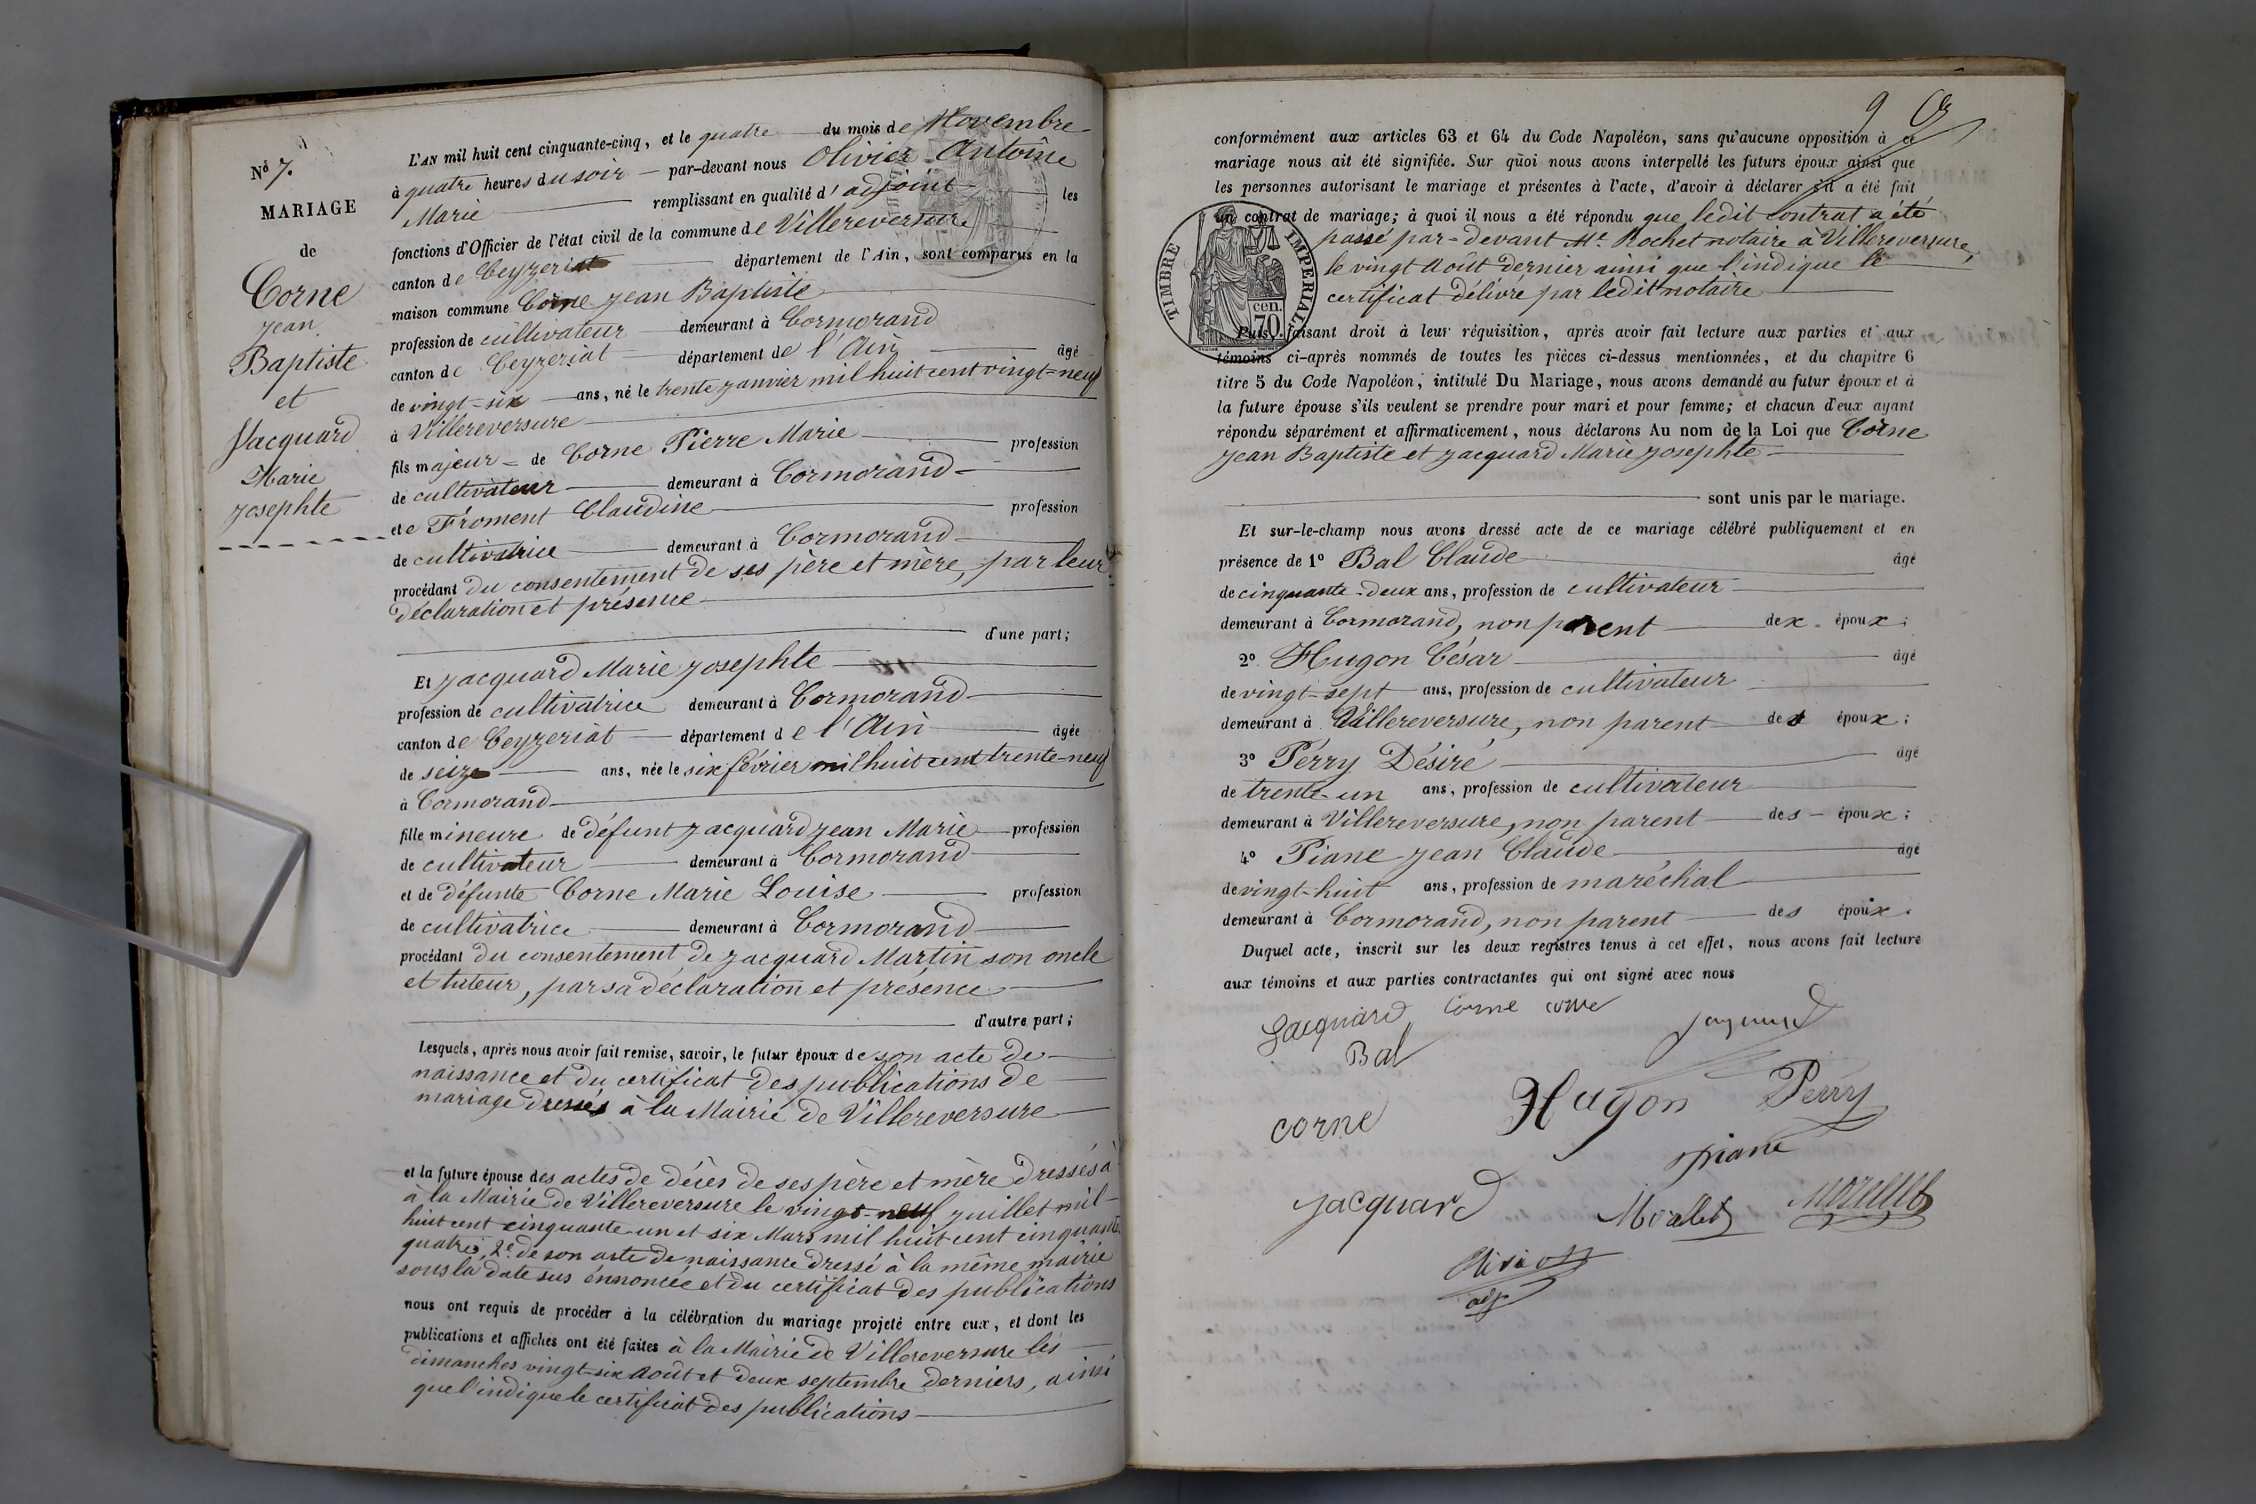 No 7.
MARIAGE
de
Corne
Jean
Baptiste
et
Jacquard
Marie
Josephte
L'AN mil huit cent cinquante-cinq, et le quatre du mois de Novembre
à quatre heures du soir par-devant nous Olivier Antoine
Marie remplissant en qualité d'adjoint les
fonctions d'Officier de l'état civil de la commune de Villereversure
canton de Ceyzeriat département de l'Ain, sont comparus en la
maison commune Corne Jean Baptiste
profession de cultivateur demeurant à Cormorand
canton de Ceyzeriat département de l'Ain âgé
de vingt-six ans, né le trente Janvier mil huit cent vingt-neuf
à Villereversure
fils majeur de Corne Pierre Marie profession
de cultivateur demeurant à Cormorand
et e Froment Claudine profession
de cultivatrice demeurant à Cormorand
procédant du consentement de ses père et mère, par leur
déclaration et présence
d'une part;
Et Jacquard Marie Josephte
profession de cultivatrice demeurant à Cormorand
canton de Ceyzeriat département de l'Ain âgée
de seize ans, née le six février mil huit cent trente-neuf
à Cormorand
fille mineure de défunt Jacquard Jean Marie profession
de cultivateur demeurant à Cormorand
et de défunte Corne Marie Louise profession
de cultivatrice demeurant à Cormorand
procédant du consentement de Jacquard Martin son oncle
et tuteur, par sa déclaration et présence
d'autre part;
Lesquels, après nous avoir fait remise, savoir, le futur époux de son acte de
naissance et du certificat des publications de
mariage dressés à la Mairie de Villereversure
et la future épouse des actes de décès de ses père et mère dressés à
à la Mairie de Villereversure le vingt-neuf Juillet mil
huit cent cinquante un et six Mars mil huit cent cinquante
quatre, 2e de son acte de naissance dressé à la même mairie
sous la date sus énnoncée et du certificat des publications
nous ont requis de procéder à la célébration du mariage projeté entre eux, et dont les
publications et affiches ont été faites à la Mairie de Villereversure les
dimanches vingt-six Août et deux septembre derniers, ainsi
que l'indique le certificat des publications
9
conformément aux articles 63 et 64 du Code Napoléon, sans qu'aucune opposition à ce
mariage nous ait été signifiée. Sur quoi nous avons interpellé les futurs époux ainsi que
les personnes autorisant le mariage et présentes à l'acte, d'avoir à déclarer s'il a été fait
un contrat de mariage; à quoi il nous a été répondu que ledit contrat a été
passé par-devant Me. Rochet notaire à Villereversure,
le vingt Août dernier ainsi que l'indique le
certificat délivré par ledit notaire
TIMBRE IMPERIAL
cen.
70
Puis, faisant droit à leur réquisition, après avoir fait lecture aux parties et aux
témoins ci-après nommés de toutes les pièces ci-dessus mentionnées, et du chapitre 6
titre 5 du Code Napoléon, intitulé Du Mariage, nous avons demandé au futur époux et à
la future épouse s'ils veulent se prendre pour mari et pour femme; et chacun d'eux ayant
répondu séparément et affirmativement, nous déclarons Au nom de la Loi que Corne
Jean Baptiste et Jacquard Marie Josephte
sont unis par le mariage.
Et sur-le-champ nous avons dressé acte de ce mariage célébré publiquement et en
présence de 1o Bal Claude âgé
de cinquante-deux ans, profession de cultivateur
demeurant à Cormorand, non parent dex époux;
2o Hugon César âgé
de vingt-sept ans, profession de cultivateur
demeurant à Villereversure, non parent des époux;
3o Pérry Désiré âgé
de trente-un ans, profession de cultivateur
demeurant à Villereversure, non parent des époux;
4o Piane Jean Claude âgé
de vingt-huit ans, profession de maréchal
demeurant à Cormorand, non parent des époux.
Duquel acte, inscrit sur les deux registres tenus à cet effet, nous avons fait lecture
aux témoins et aux parties contractantes qui ont signé avec nous
Jacquard Corne corne Jacquard
Bal
corne Hugon Perry
piane
Jacquard Morellet Morellet
Olivier
adj